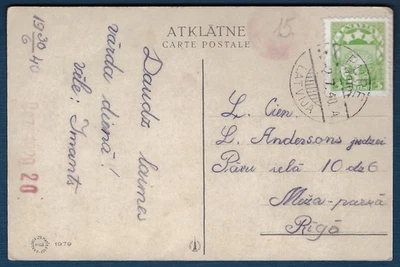 ATKLĀTNE
CARTE POSTALE
15.
19 30/6 40
Daudz laimes
vārda dienā!
vēlē: Imants
20
LATVIJA
L. Cien.
L. Andersons kundzei
Pāvu ielā 10 dz 6
Meža-parkā
Rīgā
1979